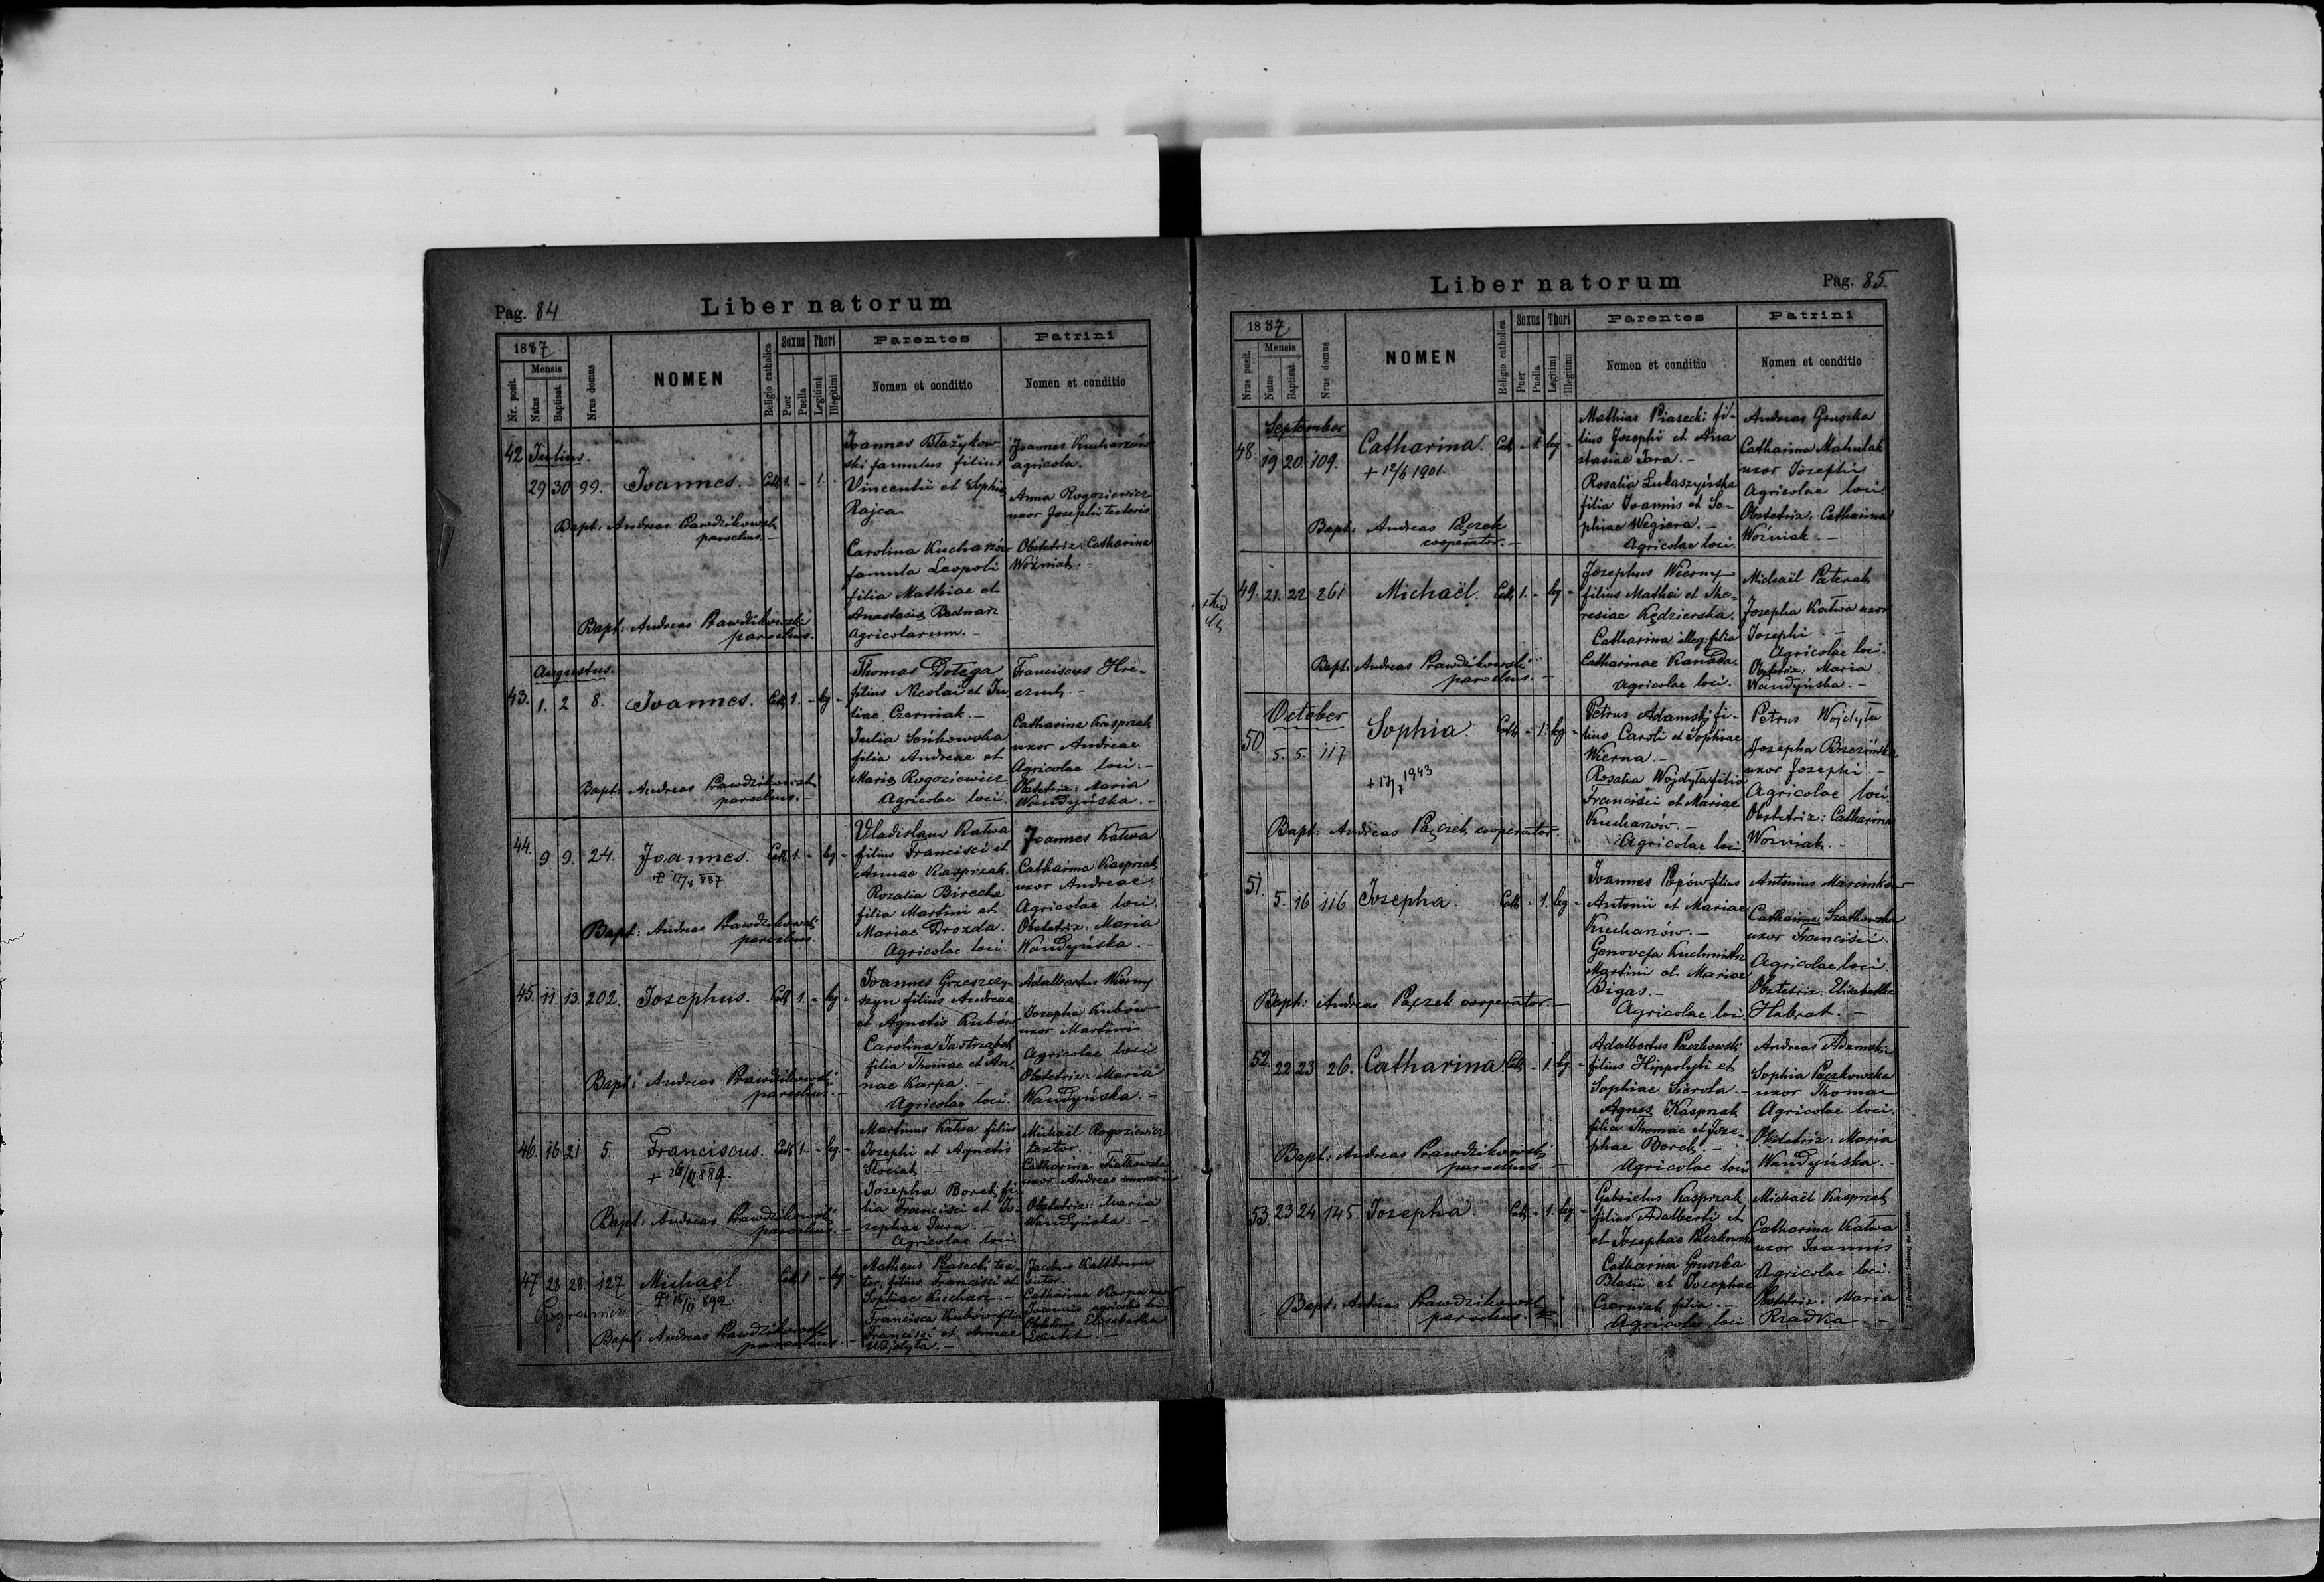 Pag. 84
Liber natorum
1887
Nr. posit.
Mensis
Natus
Baptisat.
Nrus domus
NOMEN
Religio catholica
Sexus
Puer
Puella
Thori
Legitimi
Illegitimi
Parentes
Nomen et conditio
Patrini
Nomen et conditio
42 Julius.
29 30 99. Joannes. Cath 1. - 1.
Bapt: Andreas Prawdzikowski
parochus.
Joannes Błażykow-
ski famulus filius
Vincentii et Sophiae
Rajca
Carolina Kucharzów
famula Leopoli
filia Mathiae et
Anastasia Bednarz
agricolarum.
Joannes Kucharzów
agricola.
Anna Rogoziewicz
uxor Josephi textoris
Obstetrix: Catharina
Woźniak.
Bapt: Andreas Prawdzikowski
parochus.
Augustus.
43. 1. 2 8. Joannes. Cath 1. - leg -
Bapt: Andreas Prawdzikowski
parochus.
Thomas Dołęga
filius Nicolai et Ju
liae Czerniak.
Julia Seńkowska
filia Andreae et
Maria Rogoziewicz
Agricolae loci.
Franciscus Hre-
czuch.
Catharina Kasprzak
uxor Andreae
Agricolae loci.
Obstetrix: Maria
Wandyńska.
44. 9 9. 24. Joannes Cath 1. - leg -
Bapt: Andreas Prawdzikowski
parochus.
Vladislaus Kałwa
filius Francisci et
Annae Kasprzak.
Rozalia Birecka
filia Martini et
Mariae Drozda.
Agricolae loci.
Joannes Kałwa
Catharina Kasprzak
uxor Andreae
Agricolae loci.
Obstetrix: Maria
Wandyńska.
45. 11. 13. 202. Josephus. Cath 1. - leg -
Bapt: Andreas Prawdzikowski
parochus.
Joannes Grzeszczy-
szyn filius Andreae
et Agnetis Kubów
Carolina Jastrząbek
filia Thomae et An-
nae Karpa.
Agricolae loci.
Adalbertus Wierny
Josepha Kubów
uxor Martini
Agricolae loci.
Obstetrix: Maria
Wandyńska.
46. 16 21 5. Franciscus. Cath 1. - leg. -
Bapt: Andreas Prawdzikowski
parochus.
Martinus Kałwa filius
Josephi et Agnetis
Josepha Borek fi
lia Francisci et Jo-
sephae Jura.
Agricolae loci.
Michaël Rogoziewicz
textor.
Catharina Fiałkowska
uxor Andreae
Obstetrix: Maria
Wandyńska.
47 28 28. 127 Michaël. Cath 1 - leg -
Bapt: Andreas Prawdzikowski
parochus.
Matheus Piasecki tex-
tor, filius Francisci et
Sophiae Kucharz.
Francisca Kubów filia
Francisci et Annae
Wojdyła.
Jacobus
sutor.
Catharina Karpa uxor
Joannis agricolae loci
Obstetrix Elisabetha
Pag. 85
Liber natorum
1887
Nrus posit.
Mensis
Natus
Baptisat.
Nrus domus
NOMEN
Religio catholica
Sexus
Puer
Puella
Thori
Legitimi
Illegitimi
Parentes
Nomen et conditio
Patrini
Nomen et conditio
September
48. 19 20. 109. Catharina. Cath - 1. leg -
+ 12/6 1901.
Bapt: Andreas Pączek
cooperator.
Mathias Piasecki fi-
lius Josephi et Ana
stasiae Jara.
Rosalia Łukaszyńska
filia Joannis et So-
phiae Węgiera.
Agricolae loci.
Andreas Gruszka
Catharina Mahulak
uxor Josephi
Agricolae loci
Obstetrix: Catharina
Woźniak.
49. 21. 22 261 Michaël. Cath 1. - leg -
Bapt: Andreas Prawdzikowski
parochus.
Josephus Wierny
filius Mathei et The-
resiae Kędzierska.
Catharina illeg: filia
Catharinae Kanada.
Agricolae loci.
Michaël Paterak
Josepha Kałwa uxor
Josephi
Agricolae loci.
Obstetrix: Maria
Wandyńska.
October
50 5. 5. 117 Sophia. Cath - 1. leg -
+ 17/7 1943
Bapt: Andreas Pączek cooperator.
Petrus Adamski fi-
lius Caroli et Sophiae
Wierna.
Rosalia Wojdyła filia
Francisci et Mariae
Kucharzów.
Agricolae loci
Petrus Wojdyła
Josepha Brzezińska
uxor Josephi.
Agricolae loci.
Obstetrix: Catharina
Woźniak.
51. 5. 16 116 Josepha. Cath - 1. leg -
Bapt: Andreas Pączek cooperator.
Joannes Popów filius
Antonii et Mariae
Kucharzów.
Genovefa
Martini et Mariae
Bigas.
Agricolae loci
Antonius Marcinków
Catharina Szatkowska
uxor Francisci.
Agricolae loci.
Obstetrix: Elisabetha
Habrat.
52. 22 23 26. Catharina Cath - 1. leg -
Bapt: Andreas Prawdzikowski
parochus.
Adalbertus Paczkowski
filius Hippolyti et
Sophiae Sierota.
Agnes Kasprzak
filia Thomae et Jose-
phae Borek.
Agricolae loci
Andreas Adamski
Sophia Paczkowska
uxor Thomae
Agricolae loci.
Obstetrix: Maria
Wandyńska.
53. 23 24 145. Josepha. Cath - 1. leg -
Bapt: Andreas Prawdzikowski
parochus.
Gabrielus Kasprzak
filius Adalberti et
et Josephae Paczkowska
Catharina Gruszka
Blasii et Josephae
Czerniak filia.
Agricolae loci
Michaël Kasprzak
Catharina Kałwa
uxor Joannis
Agricolae loci.
Obstetrix: Maria
Rzadka.